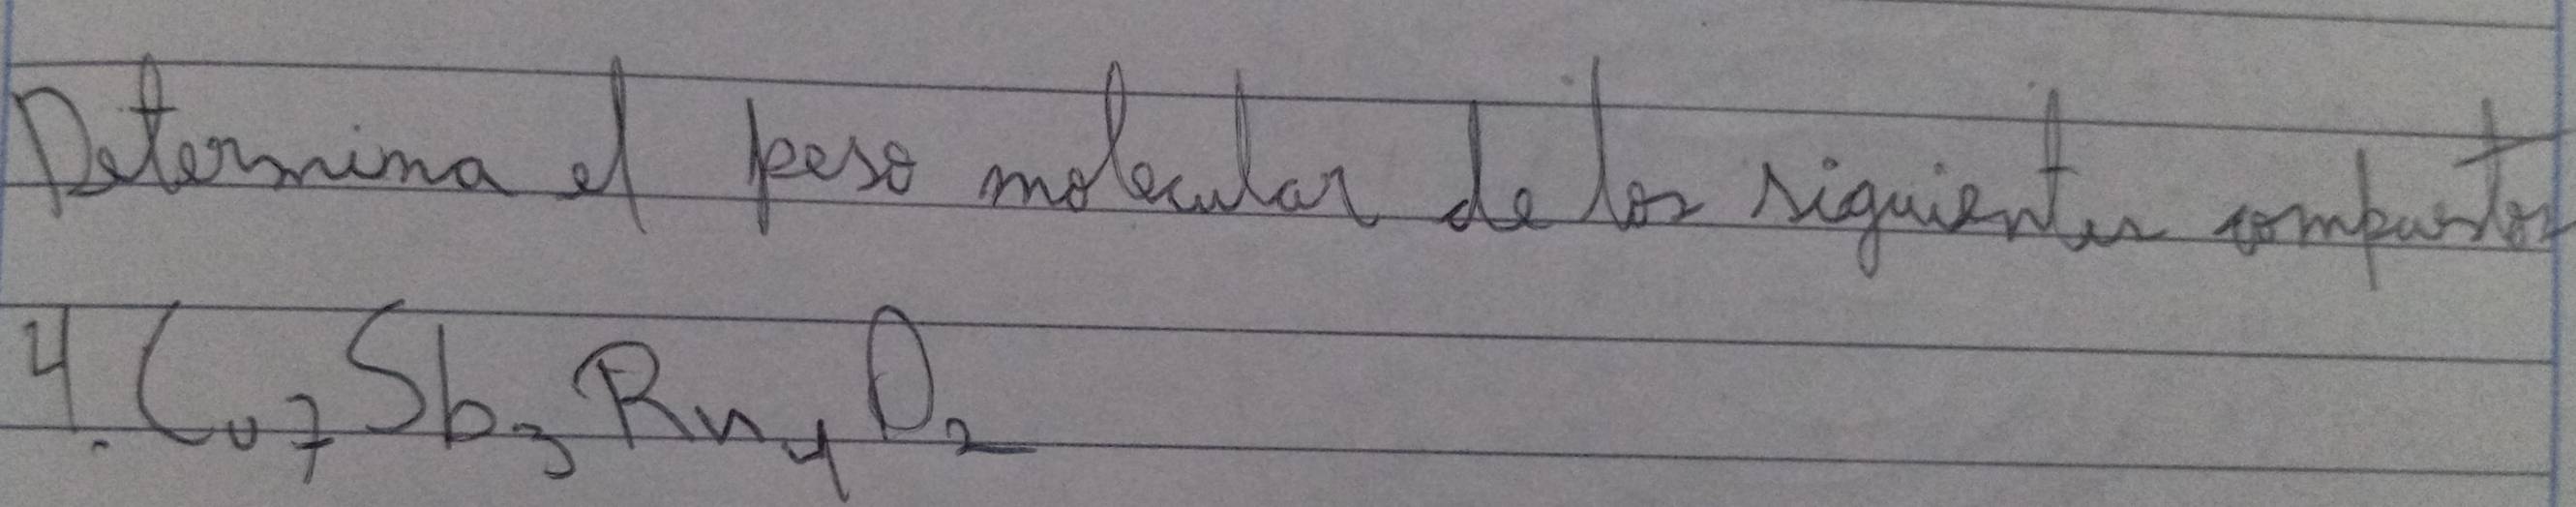 Determina el peso molecular de los siguientes compuestos
4. Cu₇Sb₃Rn₄O₂